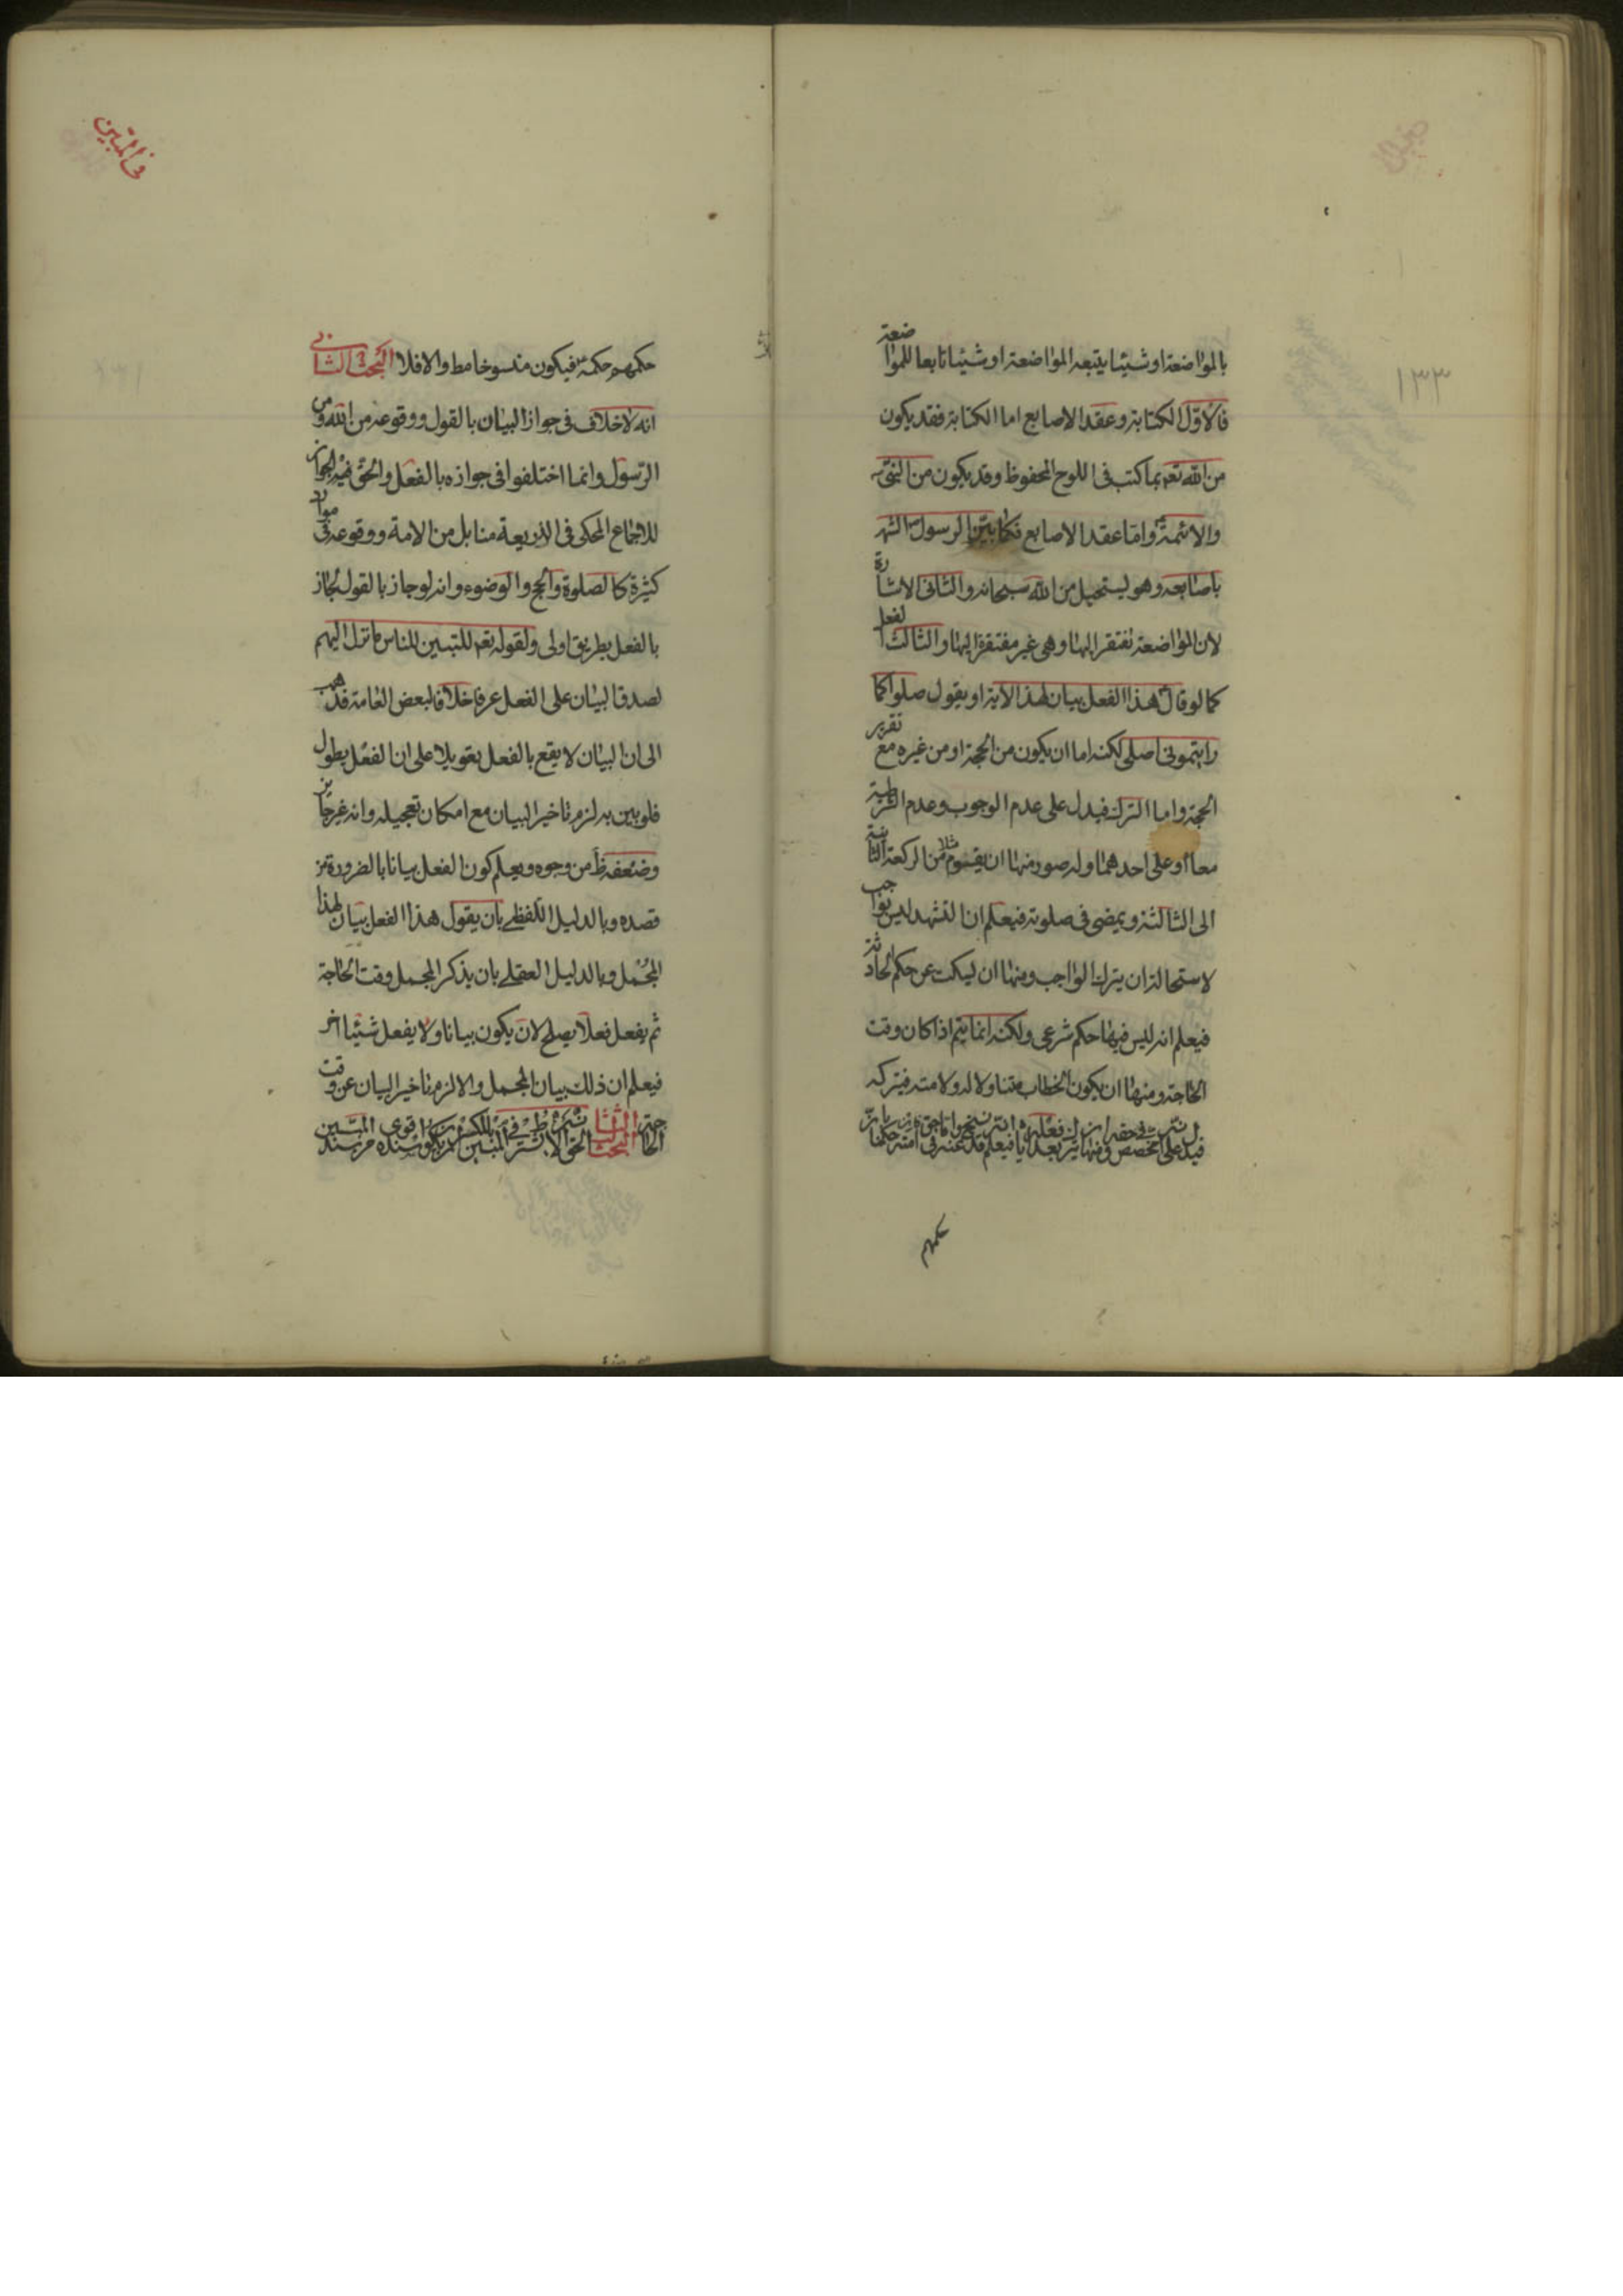 ١٣٣
بالمواضعة او شيئا يتبعه المواضعة او شيئا تابعا للمواضعة
فالاوّل الكتابة وعقد الاصابع اما الكتابة فقد يكون
من الله تعم بما كتب فى اللوح المحفوظ وقد يكون من النبىّ
والائمة واما عقد الاصابع فكما بيّن الرسول الشهر
باصابعه وهو يستحيل من الله سبحانه والثانى الاشارة
لان المواضعة تفتقر اليها وهى غير مفتقرة اليها والثالث الفعل
كما لو قال هذا الفعل بيان لهذا الاية او يقول صلوا كما
رايتمونى اصلى لكنه اما ان يكون من الحجة او من غيره مع تقرير
الحجة واما الترك فيدل على عدم الوجوب وعدم الشرطية
معا او على احدهما وله صور منها ان يقوم مثلا من الركعة الثانية
الى الثالثة ويمضى فى صلوته فيعلم ان التشهد ليس بواجب
لاستحالة ان يترك الواجب ومنها ان يسكت عن حكم الحادثة
فيعلم انه ليس فيها حكم شرعى ولكنه انما يتم اذا كان وقت
الحاجة ومنها ان يكون الخطاب متناولا له ولامته فيتركه
فيدل على التخصيص فى حقه ومنها ان يترك بعد فعله اياه فيعلم انه قد نسخ عنه
حكمهم
فى المبيّن
حكمهم حكمه فيكون منسوخا مط والا فلا البحث الثانى
انه لا خلاف فى جواز البيان بالقول ووقوعه من الله ومن
الرسول وانما اختلفوا فى جوازه بالفعل والحق فيه الجواز
للاجماع المحكى فى الذريعة منا بل من الامة ووقوعه فى موارد
كثيرة كالصلوة والحج والوضوء وانه لو جاز بالقول لجاز
بالفعل بطريق اولى ولقوله تعم للتبين للناس ما نزل اليهم
لصدق البيان على الفعل عرفا خلافا لبعض العامة فذهب
الى ان البيان لا يقع بالفعل تعويلا على ان الفعل يطول
فلو بين به لزم تاخير البيان مع امكان تعجيله وانه غير جايز
وضعفه ظ من وجوه ويعلم كون الفعل بيانا بالضرورة من
قصده وبالدليل اللفظى بان يقول هذا الفعل بيان لهذا
المجمل وبالدليل العقلى بان يذكر المجمل وقت الحاجة
ثم يفعل فعلا يصلح لان يكون بيانا ولا يفعل شيئا اخر
فيعلم ان ذلك بيان المجمل والا لزم تاخير البيان عن وقت
الحاجة البحث الثالث الحق انه لا يشترط فى المبين بالكسر ان يكون سنده اقوى من سند المبين